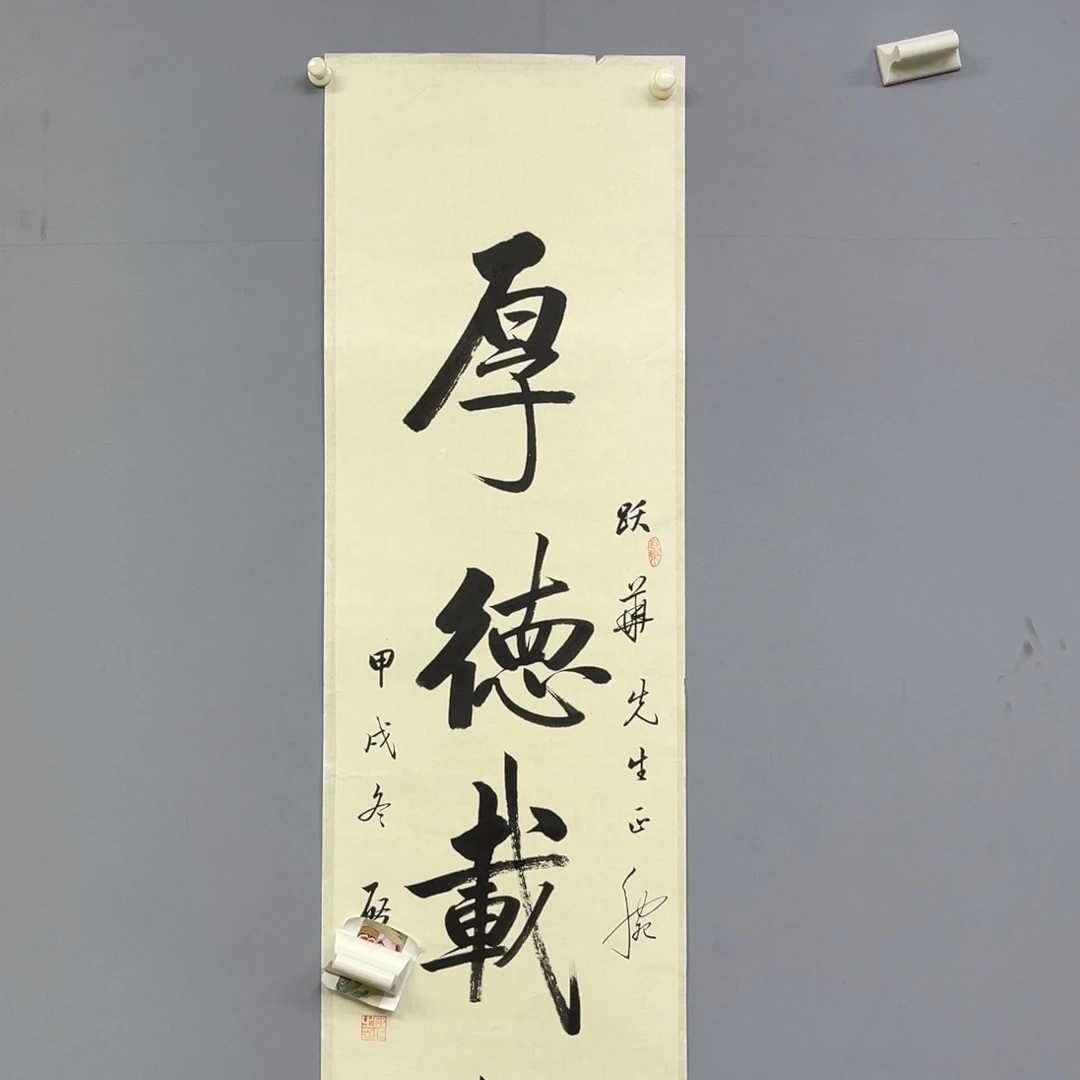 跃華先生正腕
厚德載
甲戌冬启